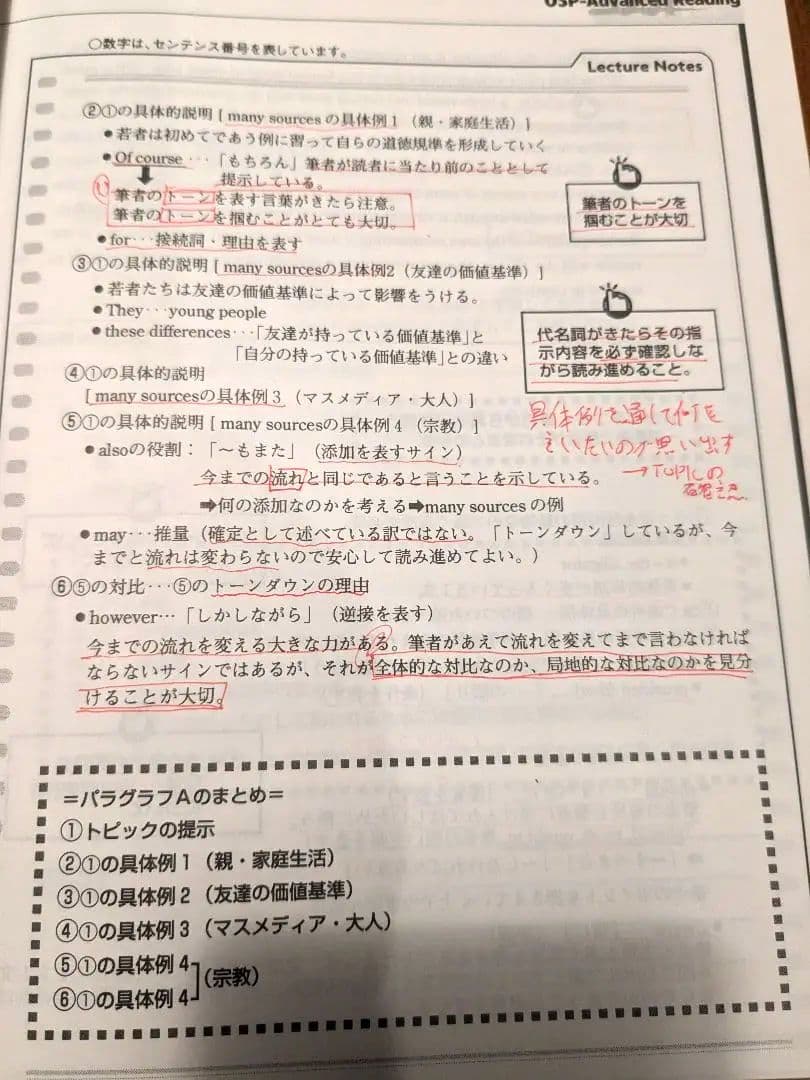 USP-Advanced Reading
○数字は、センテンス番号を表しています。
Lecture Notes
②①の具体的説明 [ many sources の具体例1（親・家庭生活）]
●若者は初めてであう例に習って自らの道徳規準を形成していく
●Of course…「もちろん」筆者が読者に当たり前のこととして
提示している。
筆者のトーンを表す言葉がきたら注意。
筆者のトーンを掴むことがとても大切。
筆者のトーンを
掴むことが大切
●for…接続詞・理由を表す
③①の具体的説明 [ many sourcesの具体例2（友達の価値基準）]
●若者たちは友達の価値基準によって影響をうける。
●They…young people
●these differences…「友達が持っている価値基準」と
「自分の持っている価値基準」との違い
代名詞がきたらその指
示内容を必ず確認しな
がら読み進めること。
④①の具体的説明
[ many sourcesの具体例3（マスメディア・大人）]
⑤①の具体的説明 [ many sourcesの具体例4（宗教）]
具体例を通して何を
いいたいのか思い出す
→TOPICの
●alsoの役割：「～もまた」（添加を表すサイン）
今までの流れと同じであると言うことを示している。
➡何の添加なのかを考える➡many sources の例
●may…推量（確定として述べている訳ではない。「トーンダウン」しているが、今
までと流れは変わらないので安心して読み進めてよい。）
⑥⑤の対比…⑤のトーンダウンの理由
●however…「しかしながら」（逆接を表す）
今までの流れを変える大きな力がある。筆者があえて流れを変えてまで言わなければ
ならないサインではあるが、それが全体的な対比なのか、局地的な対比なのかを見分
けることが大切。
＝パラグラフAのまとめ＝
①トピックの提示
②①の具体例1（親・家庭生活）
③①の具体例2（友達の価値基準）
④①の具体例3（マスメディア・大人）
⑤①の具体例4
（宗教）
⑥①の具体例4